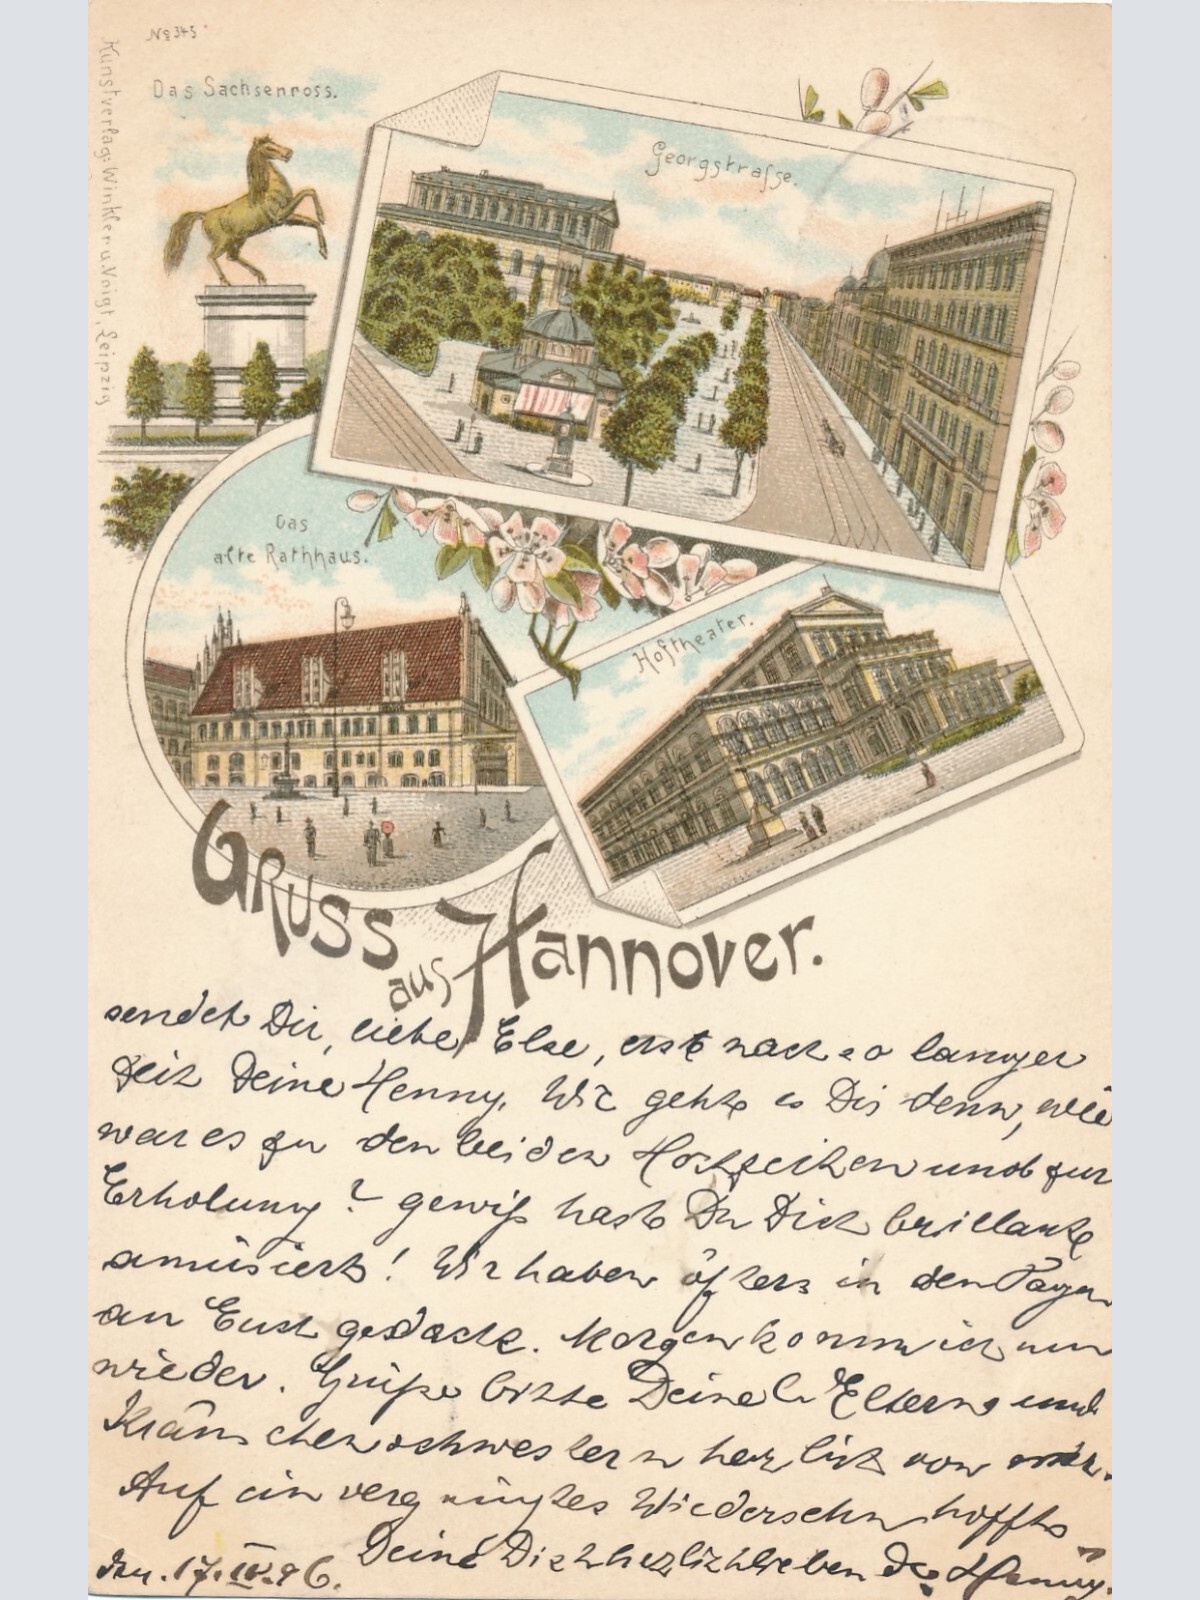 No 345
Kunstverlag: Winkler u. Voigt, Leipzig
Das Sachsenross.
Georgstrasse.
Das
alte Rathhaus.
Hoftheater.
Gruss
aus Hannover.
sendet Dir, liebe Else, erst nach so langer
Zeit Deine Henny. Wie geht es Dir denn, wie
war es zu den beiden Hochzeiten und zur
Erholung? gewiß hast Du Dich brillant
amüsiert! Wir haben öfters in den Tagen
an Euch gedacht. Morgen komm ich nun
wieder. Grüße bitte Deine l. Eltern und
Kränzchenschwestern herzlich von mir.
Auf ein vergnügtes Wiedersehn hofft
Deine Dich herzlich liebende Henny.
17. IV. 96.